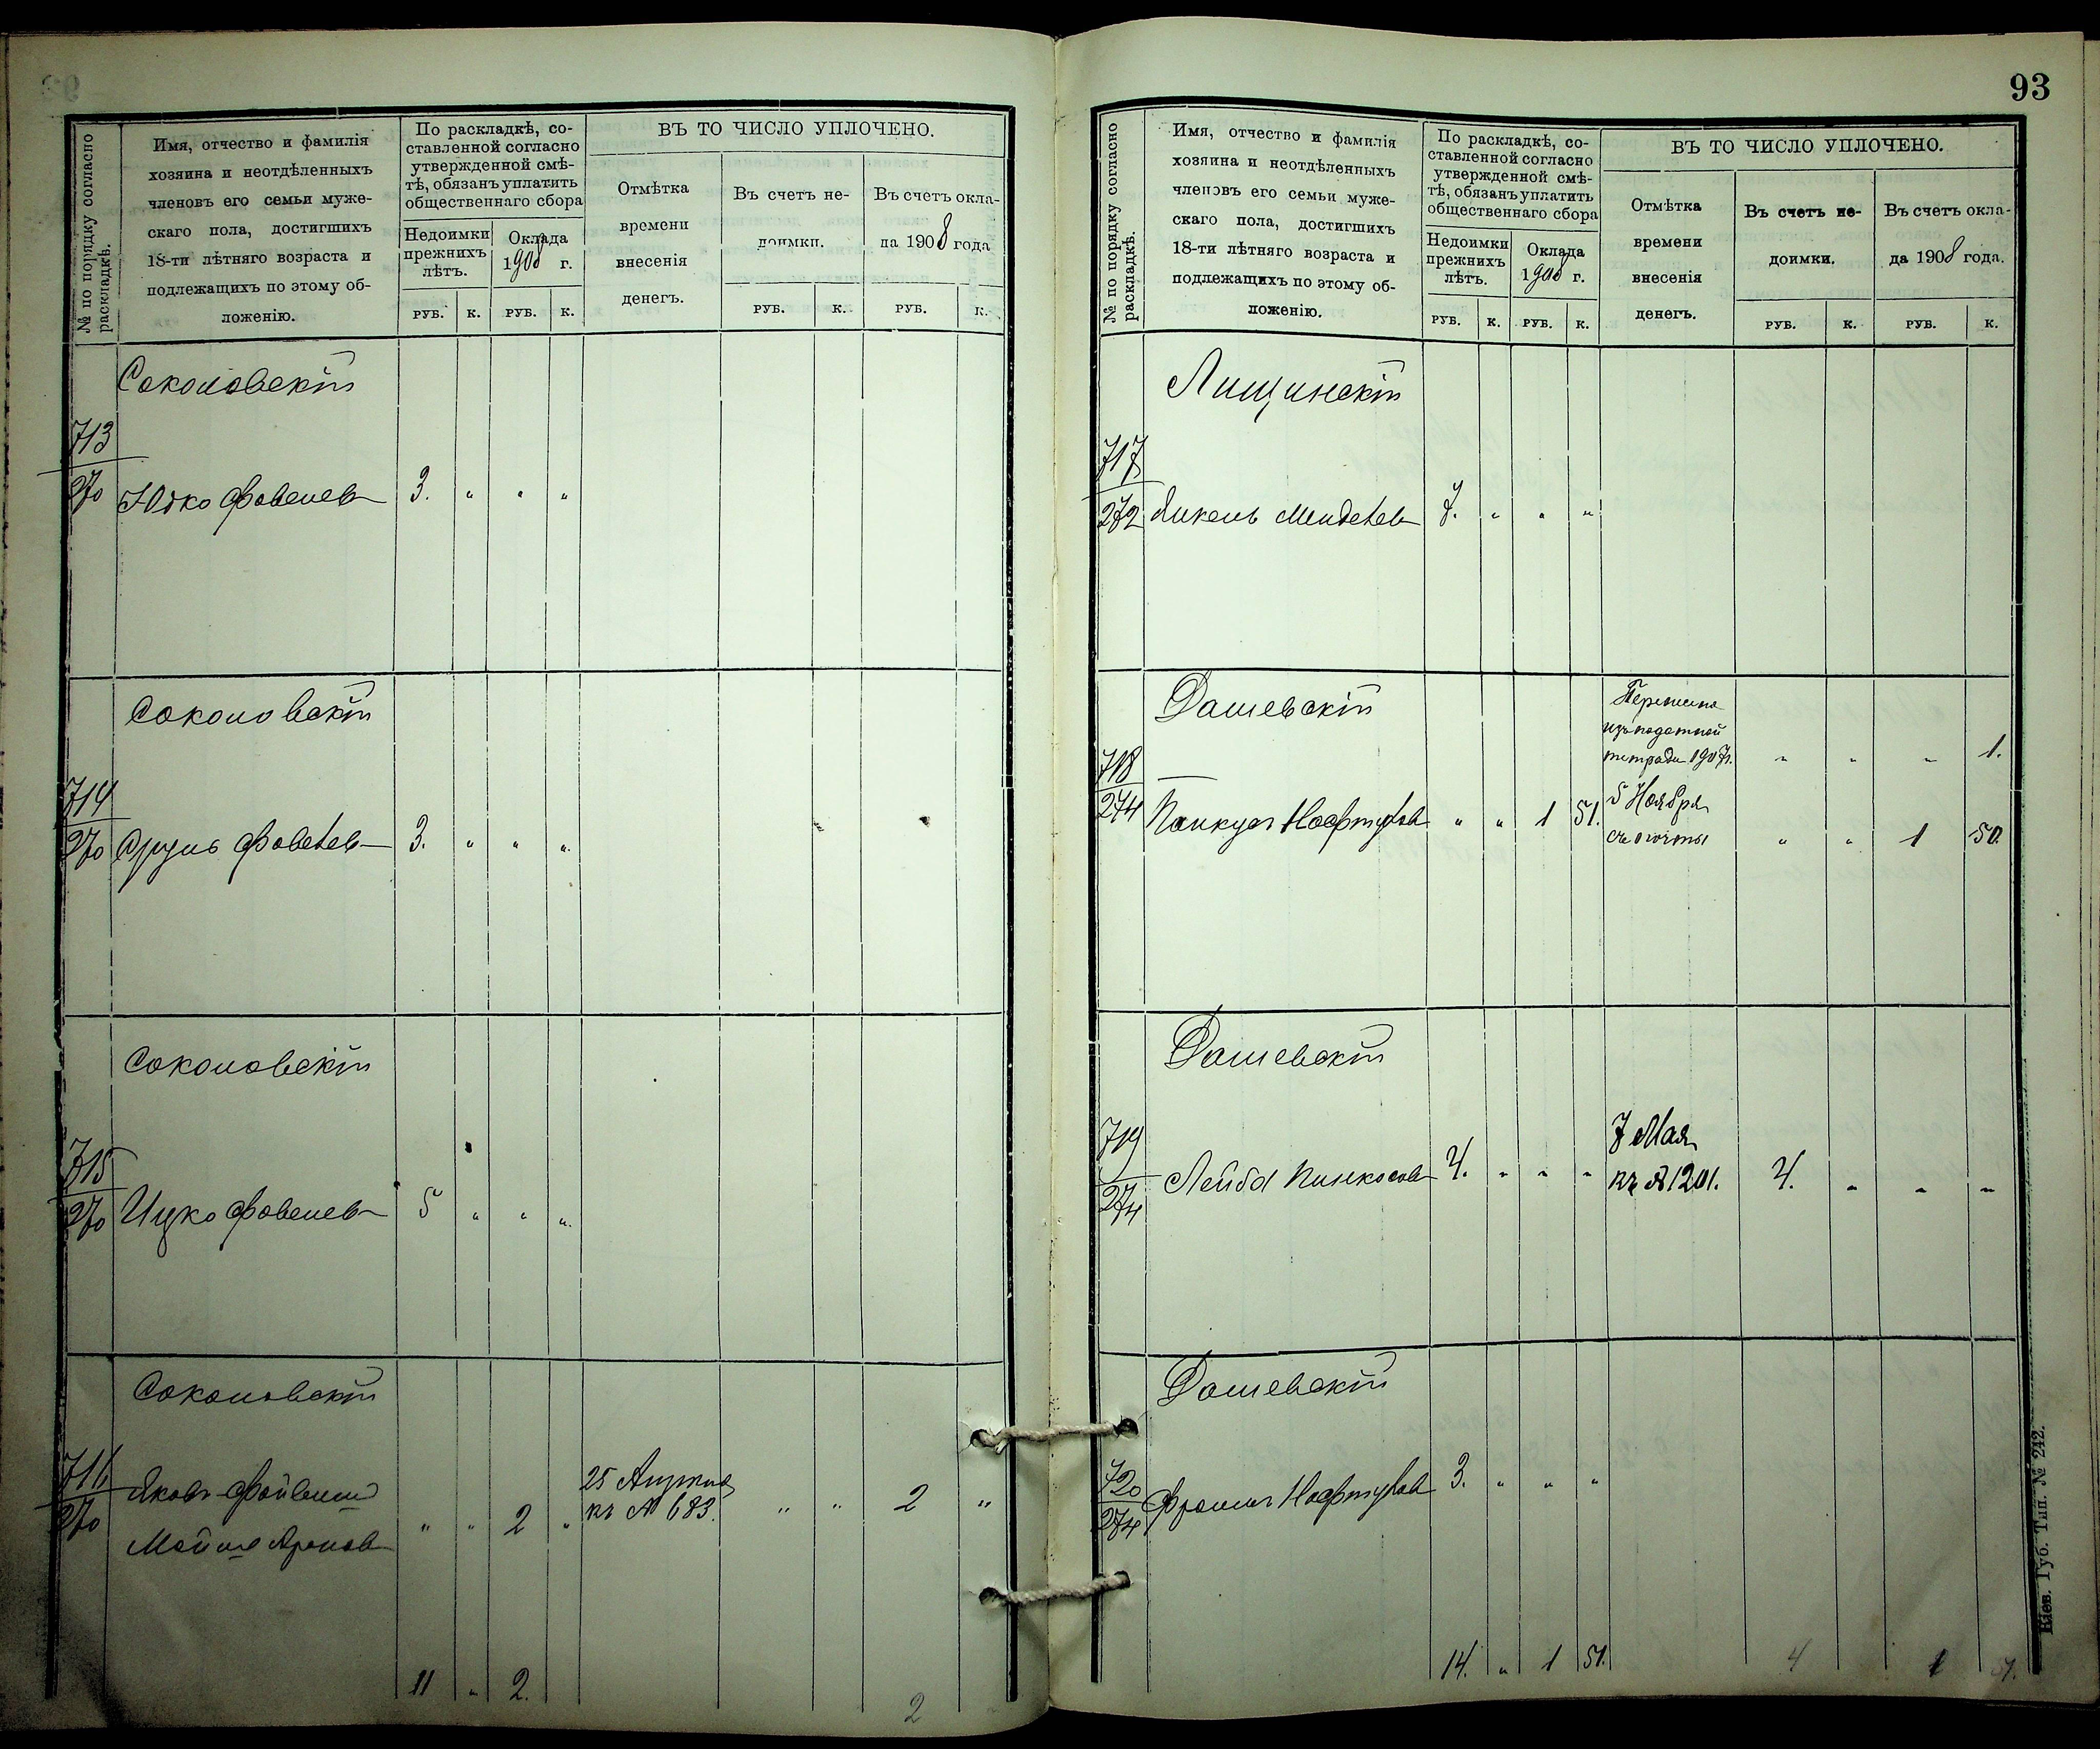 № по порядку согласно
раскладкѣ.
Имя, отчество и фамилія
хозяина и неотдѣленныхъ
членовъ его семьи муже-
скаго пола, достигшихъ
18-ти лѣтняго возраста и
подлежащихъ по этому об-
ложенію.
По раскладкѣ, со-
ставленной согласно
утвержденной смѣ-
тѣ, обязанъ уплатить
общественнаго сбора
Недоимки
прежнихъ
лѣтъ.
Оклада
1908 г.
РУБ. К. РУБ. К.
ВЪ ТО ЧИСЛО УПЛОЧЕНО.
Отмѣтка
времени
внесенія
денегъ.
Въ счетъ не-
доимки.
РУБ. К.
Въ счетъ окла-
да 1908 года
РУБ. К.
Соколовскій
713
270 Юдко Фавелев 3. " " "
Соколовскій
714
270 Сруль Фавелев 3. " " "
Соколовскій
715
270 Ицко Фавелев 5 " " "
Соколовскій
716
270 Яковъ-Файвиш
Мойше Аронов " " 2 "
25
къ № 683. " " 2 "
11 " 2.
2
93
№ по порядку согласно
раскладкѣ.
Имя, отчество и фамилія
хозяина и неотдѣленныхъ
членовъ его семьи муже-
скаго пола, достигшихъ
18-ти лѣтняго возраста и
подлежащихъ по этому об-
ложенію.
По раскладкѣ, со-
ставленной согласно
утвержденной смѣ-
тѣ, обязанъ уплатить
общественнаго сбора
Недоимки
прежнихъ
лѣтъ.
Оклада
1908 г.
РУБ. К. РУБ. К.
ВЪ ТО ЧИСЛО УПЛОЧЕНО.
Отмѣтка
времени
внесенія
денегъ.
Въ счетъ не-
доимки.
РУБ. К.
Въ счетъ окла-
да 1908 года.
РУБ. К.
Лищинскій
717
272 Янкель Менделев 7. " " "
Дашевскій
718
274 Пинкус Нафтулов " " 1 51.
изъ податной
тетради 1907 г. " " " 1.
5 Ноября
" " 1 50.
Дашевскій
719
274 Лейба Пинкосов 4. " " "
7 Мая
къ № 1201. 4. " " "
Дашевскій
720
274 Нафтулов 3. " " "
14. " 1 51. 4 1 51.
Кіев. Губ. Тип. № 242.